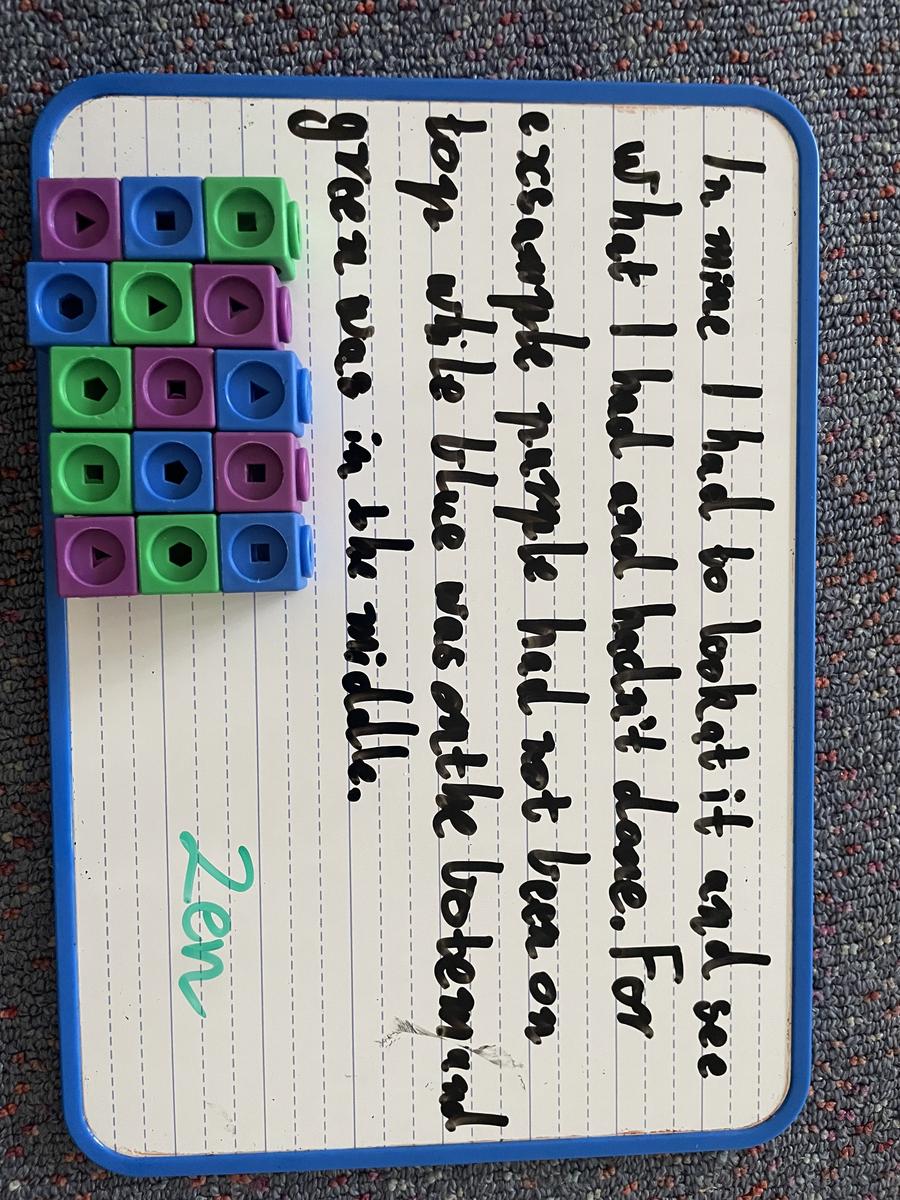 In mine I had to look at it and see
what I had and hadn't done. For
example purple had not been on
top while blue was on the botem and
green was in the middle.
Zen